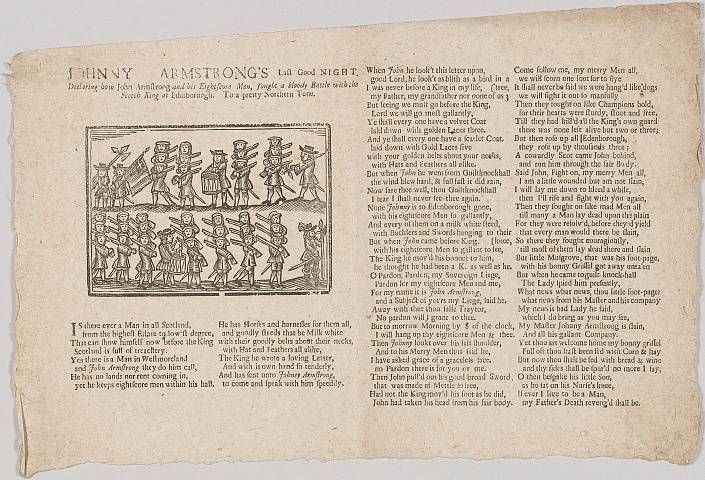 JOHNNY ARMSTRONG'S Last Good NIGHT,
Declaring how John Armstrong and his Eightscore Men, fought a bloody Battle with the
Scotch King at Edenborough. To a pretty Northern Tune.
IS there ever a Man in all Scotland,
from the highest Estate to low'st degree,
That can show himself now before the King
Scotland is full of treachery.
Yes there is a Man in Westmoreland
and John Armstrong they do him call,
He has no lands nor rent coming in,
yet he keeps eightscore men within his hall.
He has Horses and harnesses for them all,
and goodly steeds that be Milk white
with their goodly belts about their necks,
with Hat and Feathers all alike,
The King he wrote a loving Letter,
And with is own hand so tenderly,
And has sent unto Johnny Armstrong,
to come and speak with him speedily.
When John he look't this letter upon,
good Lord, he look't as blith as a bird in a
I was never before a King in my life, (tree,
my Father, my grandfather nor none of us 3
But seeing we must go before the King,
Lord we will go most gallantly,
Ye shall every one have a velvet Coat
laid down with golden Laces three.
And ye shall every one have a scarlet Coat
laid down with Gold Laces five
with your golden belts about your necks,
with Hats and Feathers all alike.
But when John he went from Guiltknockhall
the wind blew hard, & full fast it did rain,
Now fare thee well, thou Guiltknockhall
I fear I shall never see thee again.
Now Johnny is to Edenborough gone,
with his eightscore Men so gallantly,
And every of them on a milk white steed,
with Bucklers and Swords hanging to their
But when John came before King, (knee,
with his eightscore Men so gallant to see,
The King he mov'd his bonnet to him,
he thought he had been a K. as well as he.
O Pardon, Pardon, my Sovereign Liege,
Pardon for my eightscore Men and me,
For my name it is John Armstrong,
and a Subject of yours my Liege, said he.
Away with thee thou false Traytor,
No pardon will I grant to thee.
But to morrow Morning by 8 of the clock,
I will hang up thy eightscore Men & thee.
Then Johnny lookt over his left shoulder,
And to his Merry Men thus said he,
I have asked grace of a graceless face,
no Pardon there is for you or me.
Then John pull'd out his good broad Sword,
that was made of Mettle so free,
Had not the King mov'd his foot as he did,
John had taken his head from his fair body.
Come follow me, my merry Men all,
we will scorn one foot for to flye
It shall never be said we were hang'd like dogs
we will fight it out so manfully
Then they fought on like Champions bold,
for their hearts were sturdy, stout and free.
Till they had kill'd all the King's own guard
there was none left alive but two or three;
But then rose up all Edenborough,
they rose up by thousands three;
A cowardly Scot came John behind,
and run him through the fair Body.
Said John, Fight on, my merry Men all,
I am a little wounded but am not slain,
I will lay me down to bleed a while,
then I'll rise and fight with you again,
Then they fought on like mad Men all
till many a Man lay dead upon the plain
For they were resolv'd, before they'd yield
that every man would there be slain,
So there they fought couragiously,
'till most of them lay dead there and slain
But little Musgrove, that was his foot-page,
with his bonny Grissel got away unta'en
But when he came to guilt-knock-hall
The Lady spied him presently,
What news what news, thou little foot-page?
what news from his Master and his company
My news is bad Lady he said,
which I do bring as you may see,
My Master Johnny Armstrong is slain,
And all his gallant Company.
Yet thou art welcome home my bonny grissel
Full oft thou hast been fed with Corn & hay
But now thou shalt be fed with bread & wine
and thy sides shall be spur'd no more I say,
O then bespake his little Son,
as he sat on his Nurse's knee,
If ever I live to be a Man,
my Father's Death reveng'd shall be.